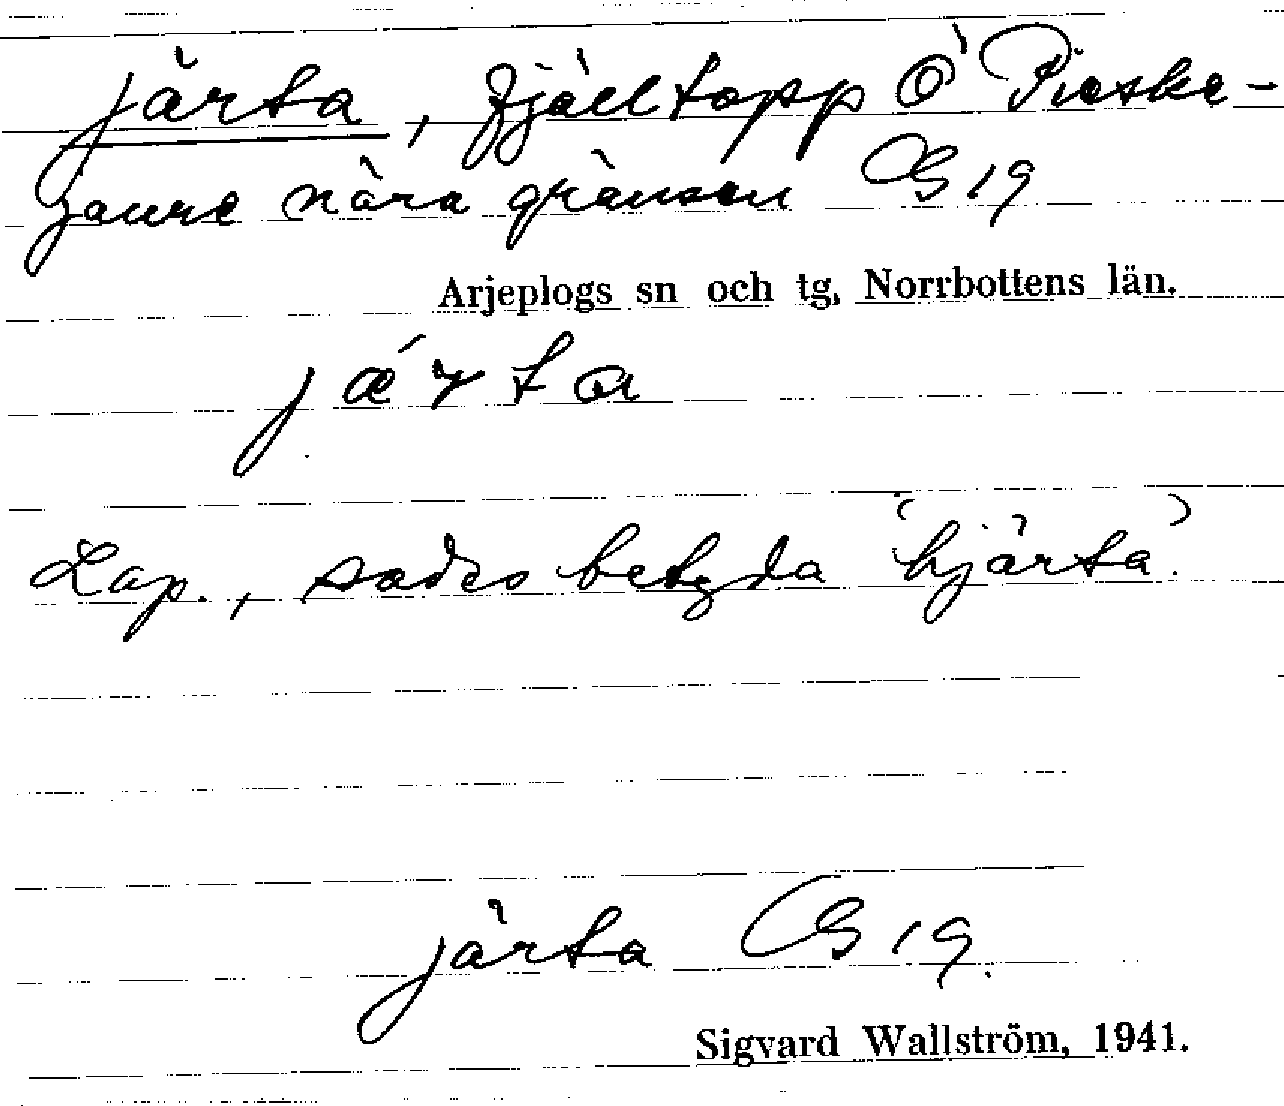 järta, fjälltopp Ö Pieske-
jaure nära gränsen G 19
Arjeplogs sn och tg, Norrbottens län.
jærta
Lap., sades betyda 'hjärta'.
järta G 19.
Sigvard Wallström, 1941.